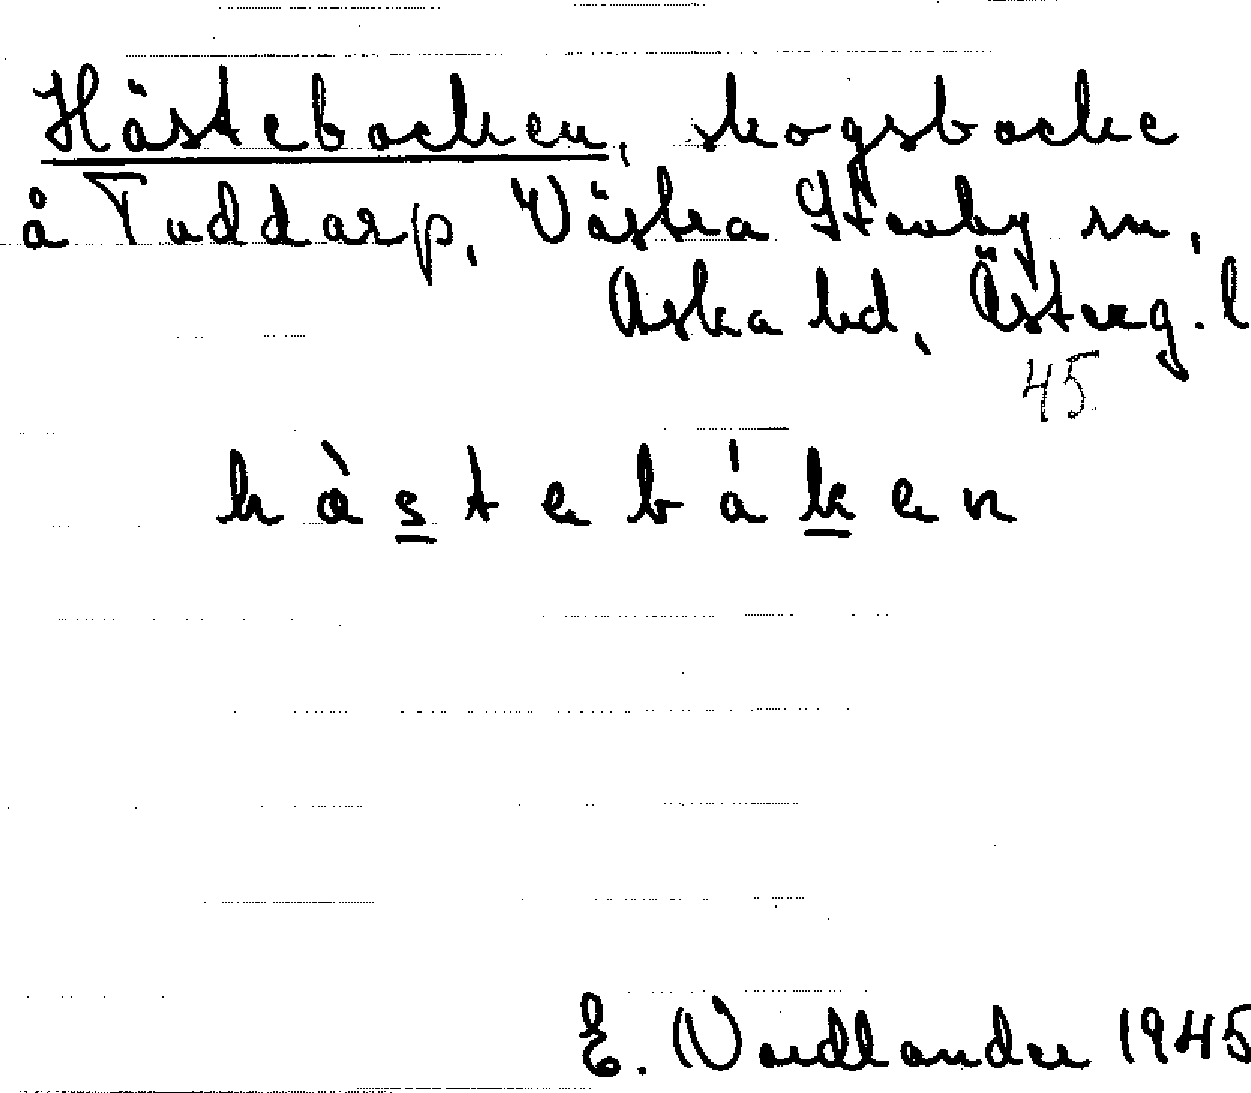 Hästebacken, skogsbacke
å Tuddarp, Västra Stenby sn,
Aska hd, Österg. l
45
hàstebáken
E. Nordlander 1945